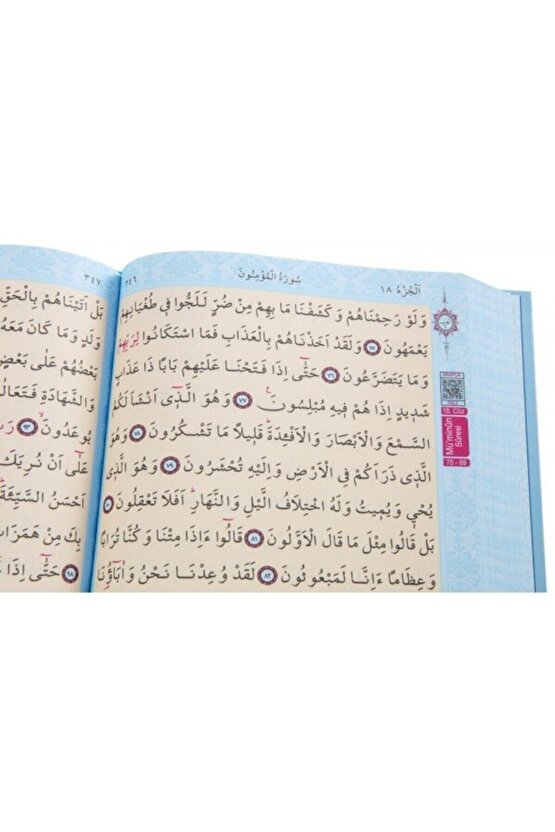 اَلْجُزْءُ ١٨
سُورَةُ الْمُؤْمِنُونَ
٣٤٦
وَلَوْ رَحِمْنَاهُمْ وَكَشَفْنَا مَا بِهِمْ مِنْ ضُرٍّ لَلَجُّوا فٖى طُغْيَانِهِمْ
يَعْمَهُونَ ٧٥ وَلَقَدْ اَخَذْنَاهُمْ بِالْعَذَابِ فَمَا اسْتَكَانُوا لِرَبِّهِمْ
وَمَا يَتَضَرَّعُونَ ٧٦ حَتّٰٓى اِذَا فَتَحْنَا عَلَيْهِمْ بَابًا ذَا عَذَابٍ
شَدٖيدٍ اِذَا هُمْ فٖيهِ مُبْلِسُونَ ٧٧ وَهُوَ الَّذٖٓى اَنْشَاَ لَكُمُ
السَّمْعَ وَالْاَبْصَارَ وَالْاَفْـِٔدَةَ قَلٖيلًا مَا تَشْكُرُونَ ٧٨ وَهُوَ
الَّذٖى ذَرَاَكُمْ فِى الْاَرْضِ وَاِلَيْهِ تُحْشَرُونَ ٧٩ وَهُوَ الَّذٖى
يُحْيٖ وَيُمٖيتُ وَلَهُ اخْتِلَافُ الَّيْلِ وَالنَّهَارِ اَفَلَا تَعْقِلُونَ ٨٠
بَلْ قَالُوا مِثْلَ مَا قَالَ الْاَوَّلُونَ ٨١ قَالُٓوا ءَاِذَا مِتْنَا وَكُنَّا تُرَابًا
وَعِظَامًا ءَاِنَّا لَمَبْعُوثُونَ ٨٢ لَقَدْ وُعِدْنَا نَحْنُ وَاٰبَٓاؤُ۬نَا
18. Cüz
Mü'minûn
Sûresi
75 - 89
٣٤٧
بَلْ اَتَيْنَاهُمْ بِالْحَقِّ
وَلَدٍ وَمَا كَانَ مَعَهُ
بَعْضُهُمْ عَلٰى بَعْضٍ
وَالشَّهَادَةِ فَتَعَالٰى
يُوعَدُونَ ٩٣
عَلٰٓى اَنْ نُرِيَكَ
اَحْسَنُ السَّيِّئَةَ
بِكَ مِنْ هَمَزَاتِ
٩٨ حَتّٰٓى اِذَا